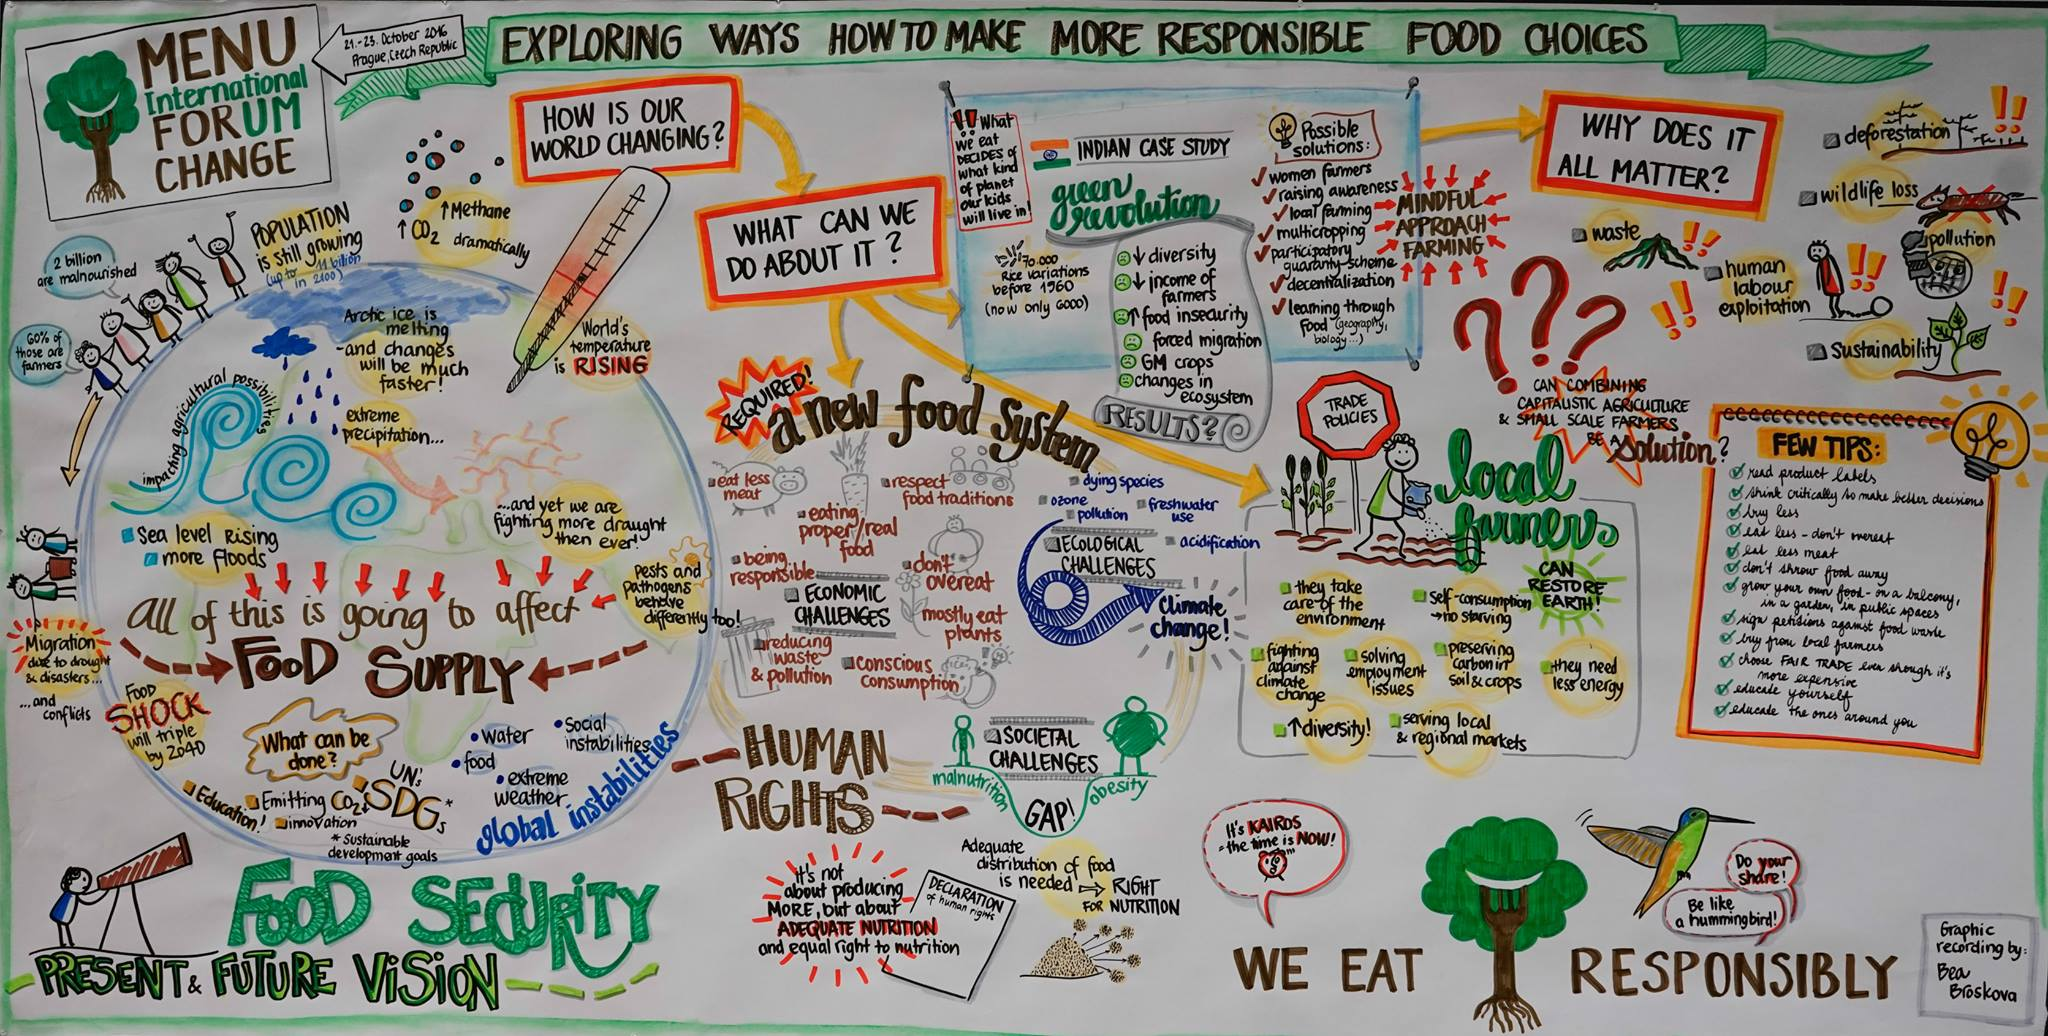 MENU
International
FORUM
CHANGE
21.-23. October 2016
Prague, Czech Republic
EXPLORING WAYS HOW TO MAKE MORE RESPONSIBLE FOOD CHOICES
HOW IS OUR
WORLD CHANGING?
↑ Methane
↑ CO2 dramatically
POPULATION
is still growing
(up to 11 billion
in 2100)
2 billion
are malnourished
60% of
those are
farmers
Arctic ice is
melting
- and changes
will be much
faster!
World's
temperature
is RISING
impacting agricultural possibilities
extreme
precipitation...
...and yet we are
fighting more draught
then ever!
Sea level Rising
more floods
Pests and
Pathogens
behave
differently too!
all of this is going to affect
FOOD SUPPLY
Migration
due to drought
& disasters...
...and
conflicts
FOOD
SHOCK
will triple
by 2040
What can be
done?
Education!
Emitting CO2
innovation
UN's
SDG*s
* Sustainable
development goals
water
food
Social
instabilities
extreme
weather
global instabilities
FOOD SECURITY
PRESENT & FUTURE VISION
WHAT CAN WE
DO ABOUT IT?
!! What
we eat
DECIDES of
what kind
of planet
our kids
will live in!
INDIAN CASE STUDY
green
revolution
70.000
Rice variations
before 1960
(now only 6000)
↓ diversity
↓ income of
farmers
↑ food insecurity
forced migration
GM crops
changes in
ecosystem
RESULTS?
Possible
solutions:
women farmers
raising awareness
local farming
multicropping
participatory
guaranty-scheme
decentralization
learning through
Food (geography,
biology...)
MINDFUL
APPROACH
FARMING
REQUIRED!
a new food system
eat less
meat
eating
proper/real
food
respect
food traditions
being
responsible
ECONOMIC
CHALLENGES
don't
overeat
mostly eat
plants
reducing
waste
& pollution
conscious
consumption
dying species
ozone
pollution
freshwater
use
acidification
ECOLOGICAL
CHALLENGES
Climate
change!
HUMAN
RIGHTS
SOCIETAL
CHALLENGES
malnutrition
obesity
GAP!
It's not
about producing
MORE, but about
ADEQUATE NUTRITION
and equal right to nutrition
DECLARATION
of human rights
Adequate
distribution of food
is needed ⇨ RIGHT
FOR NUTRITION
WHY DOES IT
ALL MATTER?
deforestation !!
wildlife loss
waste !!
pollution
human
labour
exploitation !!
!!
!!
Sustainability
???
CAN COMBINING
CAPITALISTIC AGRICULTURE
& SMALL SCALE FARMERS
BE A
solution?
TRADE
POLICIES
local
farmers
CAN
RESTORE
EARTH!
they take
care of the
environment
self-consumption
→ no starving
fighting
against
climate
change
solving
employment
issues
preserving
carbon in
soil & crops
they need
less energy
↑ diversity!
serving local
& regional markets
FEW TIPS:
read product labels
think critically to make better decisions
buy less
eat less - don't overeat
eat less meat
don't throw food away
grow your own food - on a balcony,
in a garden, in public spaces
sign petitions against food waste
buy from local farmers
choose FAIR TRADE even though it's
more expensive
educate yourself
educate the ones around you
It's KAIROS
= the time is NOW!
Do your
share!
Be like
a hummingbird!
WE EAT RESPONSIBLY
Graphic
recording by:
Bea
Broskova